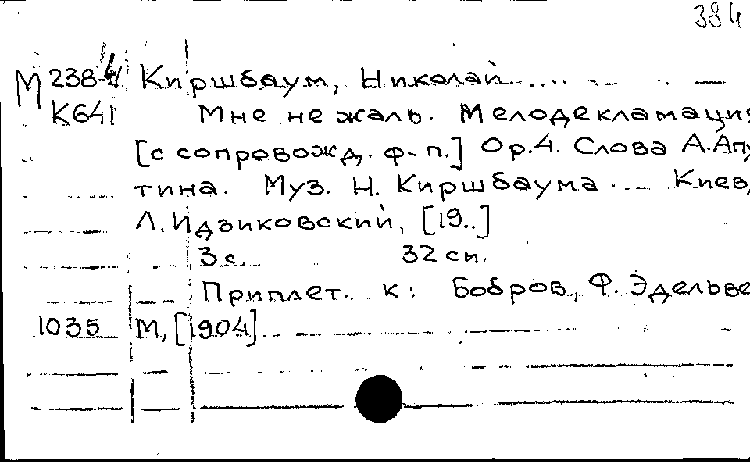 384
М 238-4 Киршбаум, Николай
К641 Мне не жаль. Мелодекламация
[с сопровожд. ф-п.] Ор.4. Слова А.Апу
тина. Муз. Н. Киршбаума Киев,
Л.Идзиковский, [19..]
3 с. 32 см.
Приплет. к: Бобров, Ф. Эдельве
1035 М, [1904]